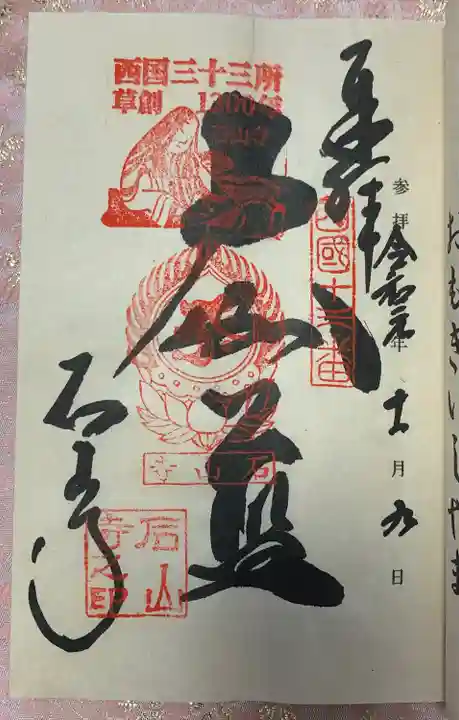 おもきいしやま
奉拝
参拝令和元年十一月九日
西國十三番
西国三十三所
草創1300年
石山寺
大伽藍
石山寺
石山寺
石山寺之印